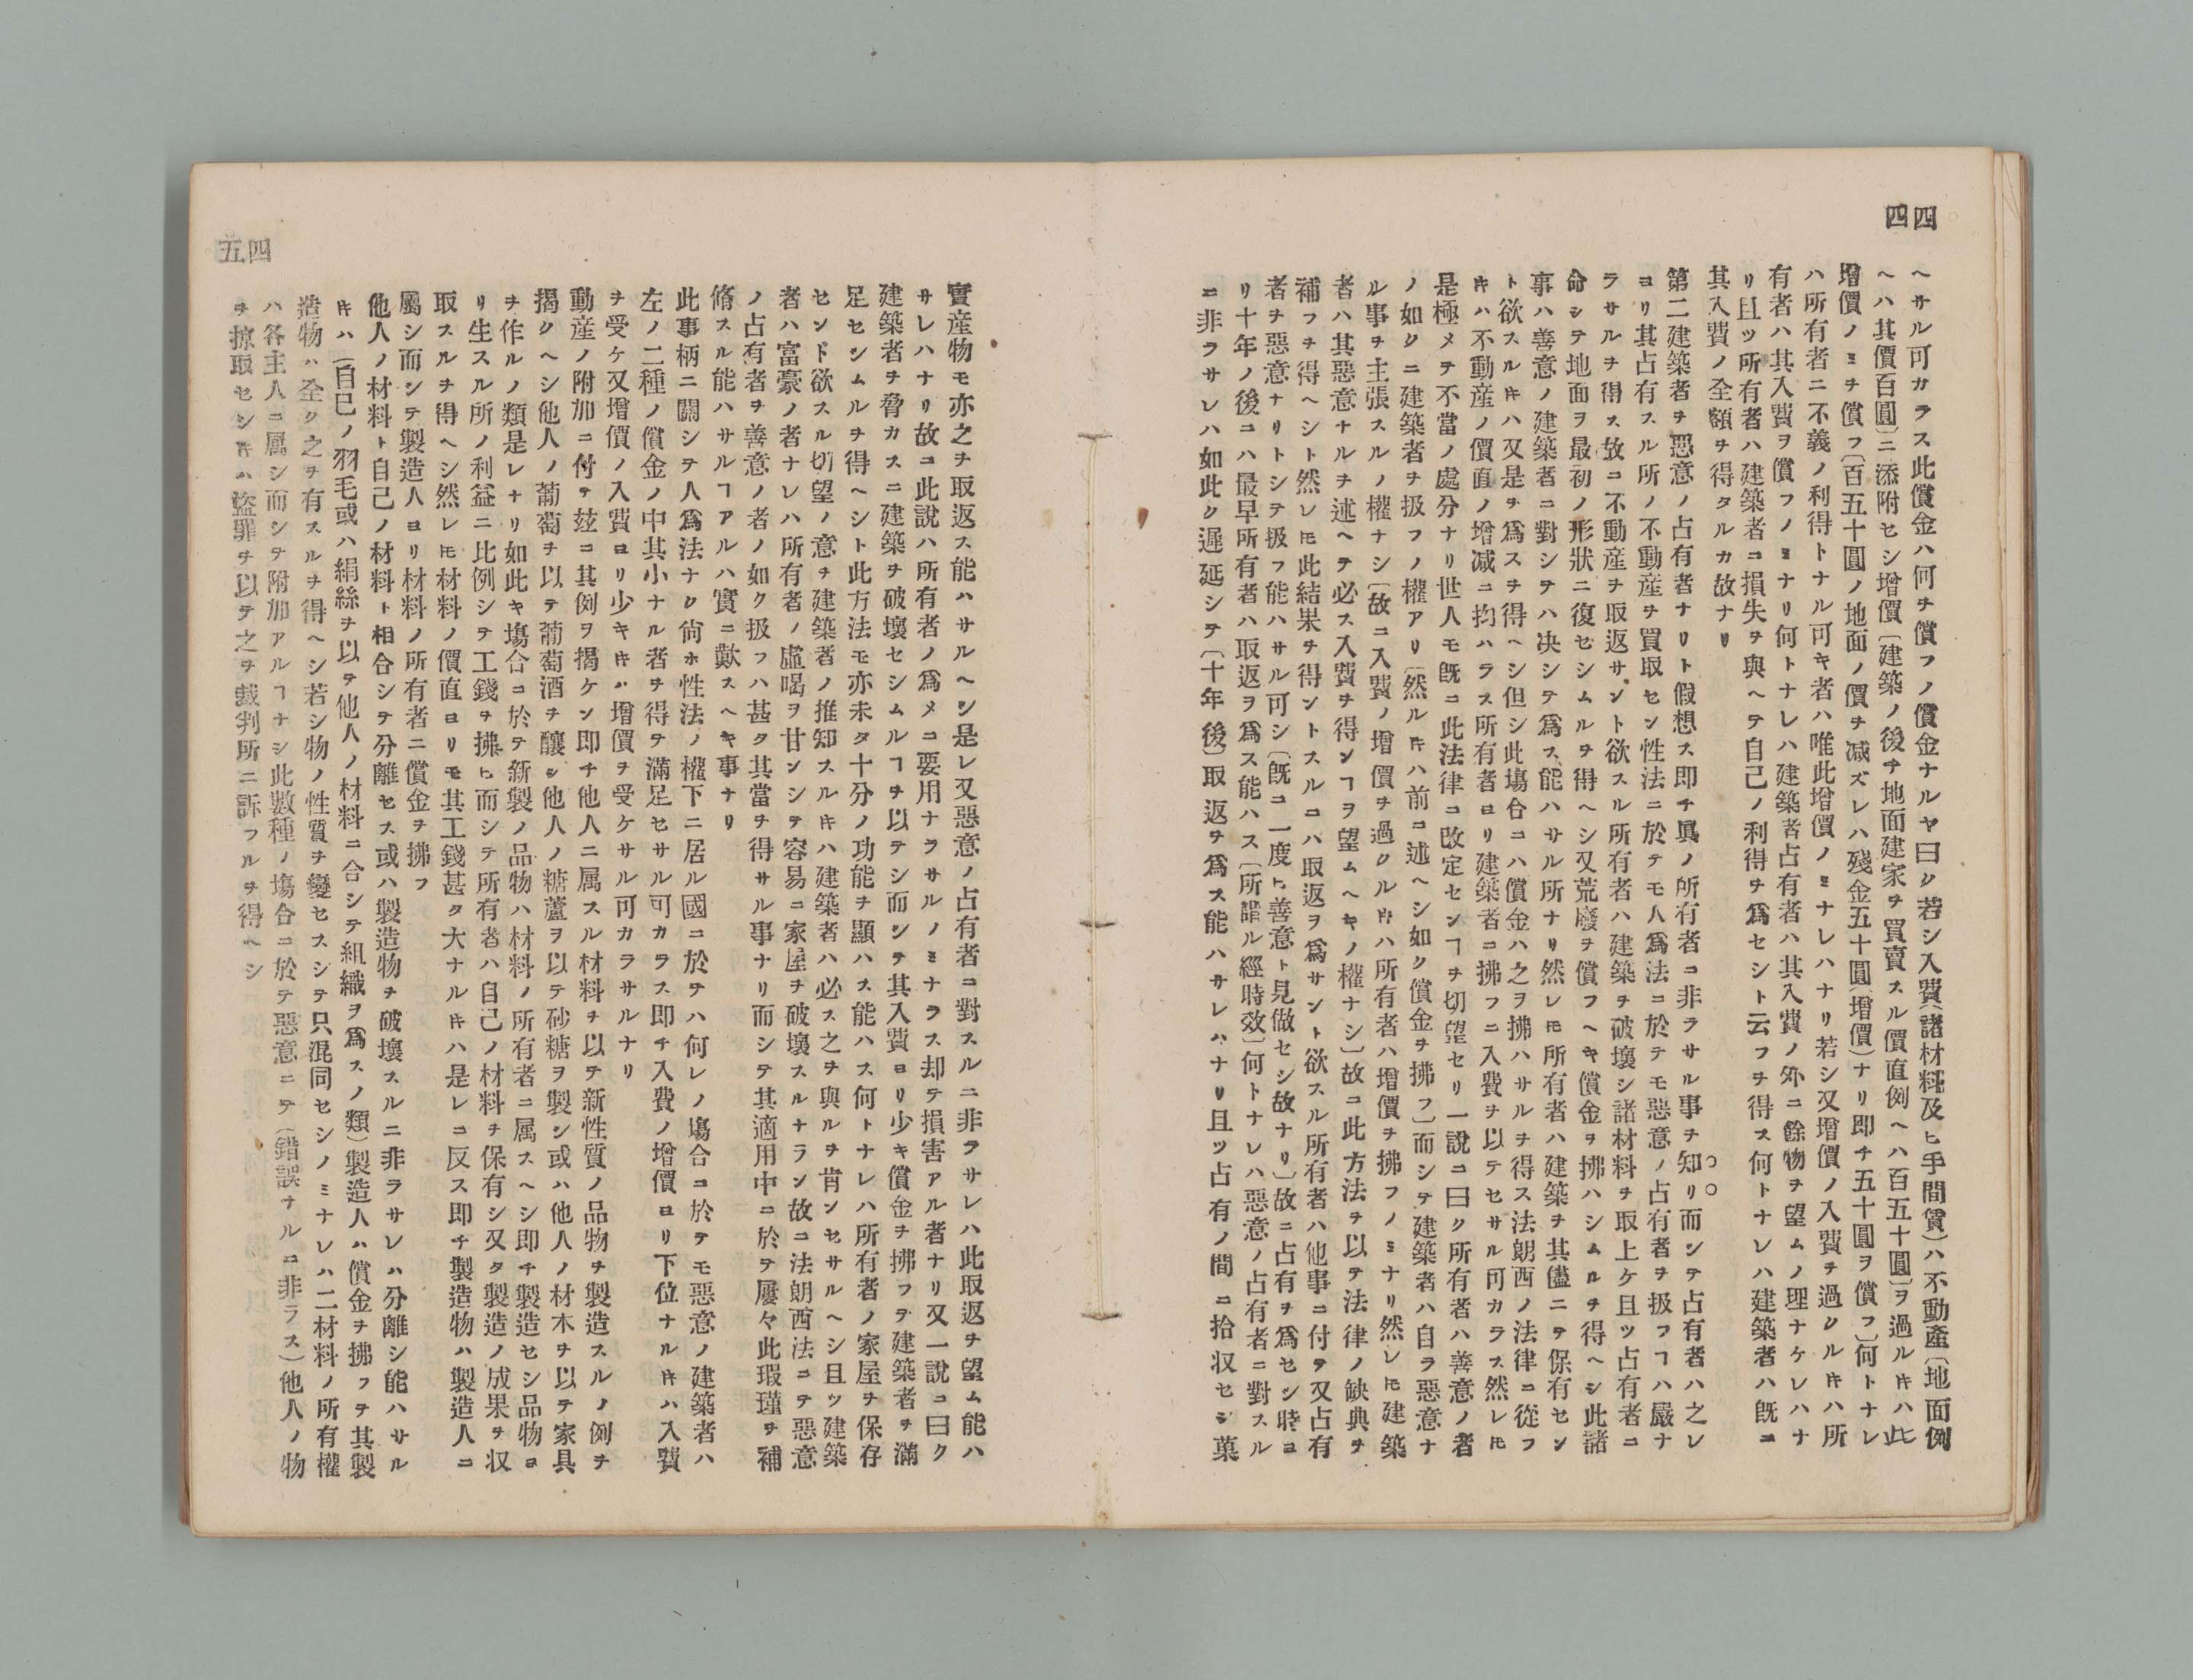 四四
ヘサル可カラス此償金ハ何ヲ償フノ償金ナルヤ曰ク若シ入費(諸材料及ヒ手間賃)ハ不動產〔地面例
ヘハ其價百圓〕ニ添附セシ增價〔建築ノ後チ地面建家ヲ買賣スル價直例ヘハ百五十圓〕ヲ過ルキハ此
增價ノミヲ償フ〔百五十圓ノ地面ノ價ヲ減ズレハ殘金五十圓(增價)ナリ即チ五十圓ヲ償フ〕何トナレ
ハ所有者ニ不義ノ利得トナル可キ者ハ唯此增價ノミナレハナリ若シ又增價ノ入費ヲ過クルキハ所
有者ハ其入費ヲ償フノミナリ何トナレハ建築者占有者ハ其入費ノ外ニ餘物ヲ望ムノ理ナケレハナ
リ且ツ所有者ハ建築者ニ損失ヲ與ヘテ自己ノ利得ヲ爲セシト云フヲ得ス何トナレハ建築者ハ既ニ
其入費ノ全額ヲ得タルカ故ナリ
第二建築者ヲ惡意ノ占有者ナリト假想ス即チ眞ノ所有者ニ非ラサル事ヲ知リ而シテ占有者ハ之レ
ヨリ其占有スル所ノ不動產ヲ買取セン性法ニ於テモ人爲法ニ於テモ惡意ノ占有者ヲ扱フヿハ嚴ナ
ラサルヲ得ス故ニ不動產ヲ取返サント欲スル所有者ハ建築ヲ破壞シ諸材料ヲ取上ケ且ツ占有者ニ
命シテ地面ヲ最初ノ形狀ニ復セシムルヲ得ヘシ又荒廢ヲ償フヘキ償金ヲ拂ハシムルヲ得ヘシ此諸
事ハ善意ノ建築者ニ對シテハ决シテ爲ス能ハサル所ナリ然レ𪜈所有者ハ建築ヲ其儘ニテ保有セン
ト欲スルキハ又是ヲ爲スヲ得ヘシ但シ此塲合ニハ償金ハ之ヲ拂ハサルヲ得ス法朗西ノ法律ニ從フ
キハ不動產ノ價直ノ增减ニ拘ハラス所有者ヨリ建築者ニ拂フニ入費ヲ以テセサル可カラス然レ𪜈
是極メテ不當ノ處分ナリ世人モ既ニ此法律ニ改定センヿヲ切望セリ一說ニ曰ク所有者ハ善意ノ者
ノ如クニ建築者ヲ扱フノ權アリ〔然ルキハ前ニ述ヘシ如ク償金ヲ拂フ〕而シテ建築者ハ自ラ惡意ナ
ル事ヲ主張スルノ權ナシ〔故ニ入費ノ增價ヲ過クルキハ所有者ハ增價ヲ拂フノミナリ然レ𪜈建築
者ハ其惡意ナルヲ述ヘテ必ス入費ヲ得ンヿヲ望ムヘキノ權ナシ〕故ニ此方法ヲ以テ法律ノ缺典ヲ
補フヲ得ヘシト然レ𪜈此結果ヲ得ントスルニハ取返ヲ爲サント欲スル所有者ハ他事ニ付テ又占有
者ヲ惡意ナリトシテ扱フ能ハサル可シ〔既ニ一度ヒ善意ト見做セシ故ナリ〕故ニ占有ヲ爲セシ時ヨ
リ十年ノ後ニハ最早所有者ハ取返ヲ爲ス能ハス〔所謂ル經時效〕何トナレハ惡意ノ占有者ニ對スル
ニ非ラサレハ如此ク遲延シテ〔十年後〕取返ヲ爲ス能ハサレハナリ且ツ占有ノ間ニ拾収セシ菓
實產物モ亦之ヲ取返ス能ハサルヘシ是レ又惡意ノ占有者ニ對スルニ非ラサレハ此取返ヲ望ム能ハ
サレハナリ故ニ此說ハ所有者ノ爲メニ要用ナラサルノミナラス却テ損害アル者ナリ又一說ニ曰ク
建築者ヲ脅カスニ建築ヲ破壞セシムルヿヲ以テシ而シテ其入費ヨリ少キ償金ヲ拂フテ建築者ヲ滿
足セシムルヲ得ヘシト此方法モ亦未タ十分ノ功能ヲ顯ハス能ハス何トナレハ所有者ノ家屋ヲ保存
セント欲スル切望ノ意ヲ建築者ノ推知スルキハ建築者ハ必ス之ヲ與ルヲ肯ンセサルヘシ且ツ建築
者ハ富豪ノ者ナレハ所有者ノ虛喝ヲ甘ンシテ容易ニ家屋ヲ破壞スルナラン故ニ法朗西法ニテ惡意
ノ占有者ヲ善意ノ者ノ如ク扱フハ甚タ其當ヲ得サル事ナリ而シテ其適用中ニ於テ屢々此瑕瑾ヲ補
脩スル能ハサルヿアルハ實ニ歎スヘキ事ナリ
此事柄ニ關シテ人爲法ナク尙ホ性法ノ權下ニ居ル國ニ於テハ何レノ塲合ニ於テモ惡意ノ建築者ハ
左ノ二種ノ償金ノ中其小ナル者ヲ得テ滿足セサル可カラス即チ入費ノ增價ヨリ下位ナルキハ入費
ヲ受ケ又增價ノ入費ヨリ少キキハ增價ヲ受ケサル可カラサルナリ
動產ノ附加ニ付テ玆ニ其例ヲ揭ケン即チ他人ニ属スル材料ヲ以テ新性質ノ品物ヲ製造スルノ例ヲ
揭クヘシ他人ノ葡萄ヲ以テ葡萄酒ヲ釀シ他人ノ糖蘆ヲ以テ砂糖ヲ製シ或ハ他人ノ材木ヲ以テ家具
ヲ作ルノ類是レナリ如此キ塲合ニ於テ新製ノ品物ハ材料ノ所有者ニ属スヘシ即チ製造セシ品物ヨ
リ生スル所ノ利益ニ比例シテ工錢ヲ拂ヒ而シテ所有者ハ自己ノ材料ヲ保有シ又タ製造ノ成果ヲ収
取スルヲ得ヘシ然レ𪜈材料ノ價直ヨリモ其工錢甚タ大ナルキハ是レニ反ス即チ製造物ハ製造人ニ
屬シ而シテ製造人ヨリ材料ノ所有者ニ償金ヲ拂フ
他人ノ材料ト自己ノ材料ト相合シテ分離セス或ハ製造物ヲ破壞スルニ非ラサレハ分離シ能ハサル
キハ(自已ノ羽毛或ハ絹絲ヲ以テ他人ノ材料ニ合シテ組織ヲ爲スノ類)製造人ハ償金ヲ拂フテ其製
造物ハ全ク之ヲ有スルヲ得ヘシ若シ物ノ性質ヲ變セスシテ只混同セシノミナレハ二材料ノ所有權
ハ各主人ニ属シ而シテ附加アルヿナシ此數種ノ塲合ニ於テ惡意ニテ(錯誤ナルニ非ラス)他人ノ物
ヲ掠取セシキハ盜罪ヲ以テ之ヲ裁判所ニ訴フルヲ得ヘシ
四五